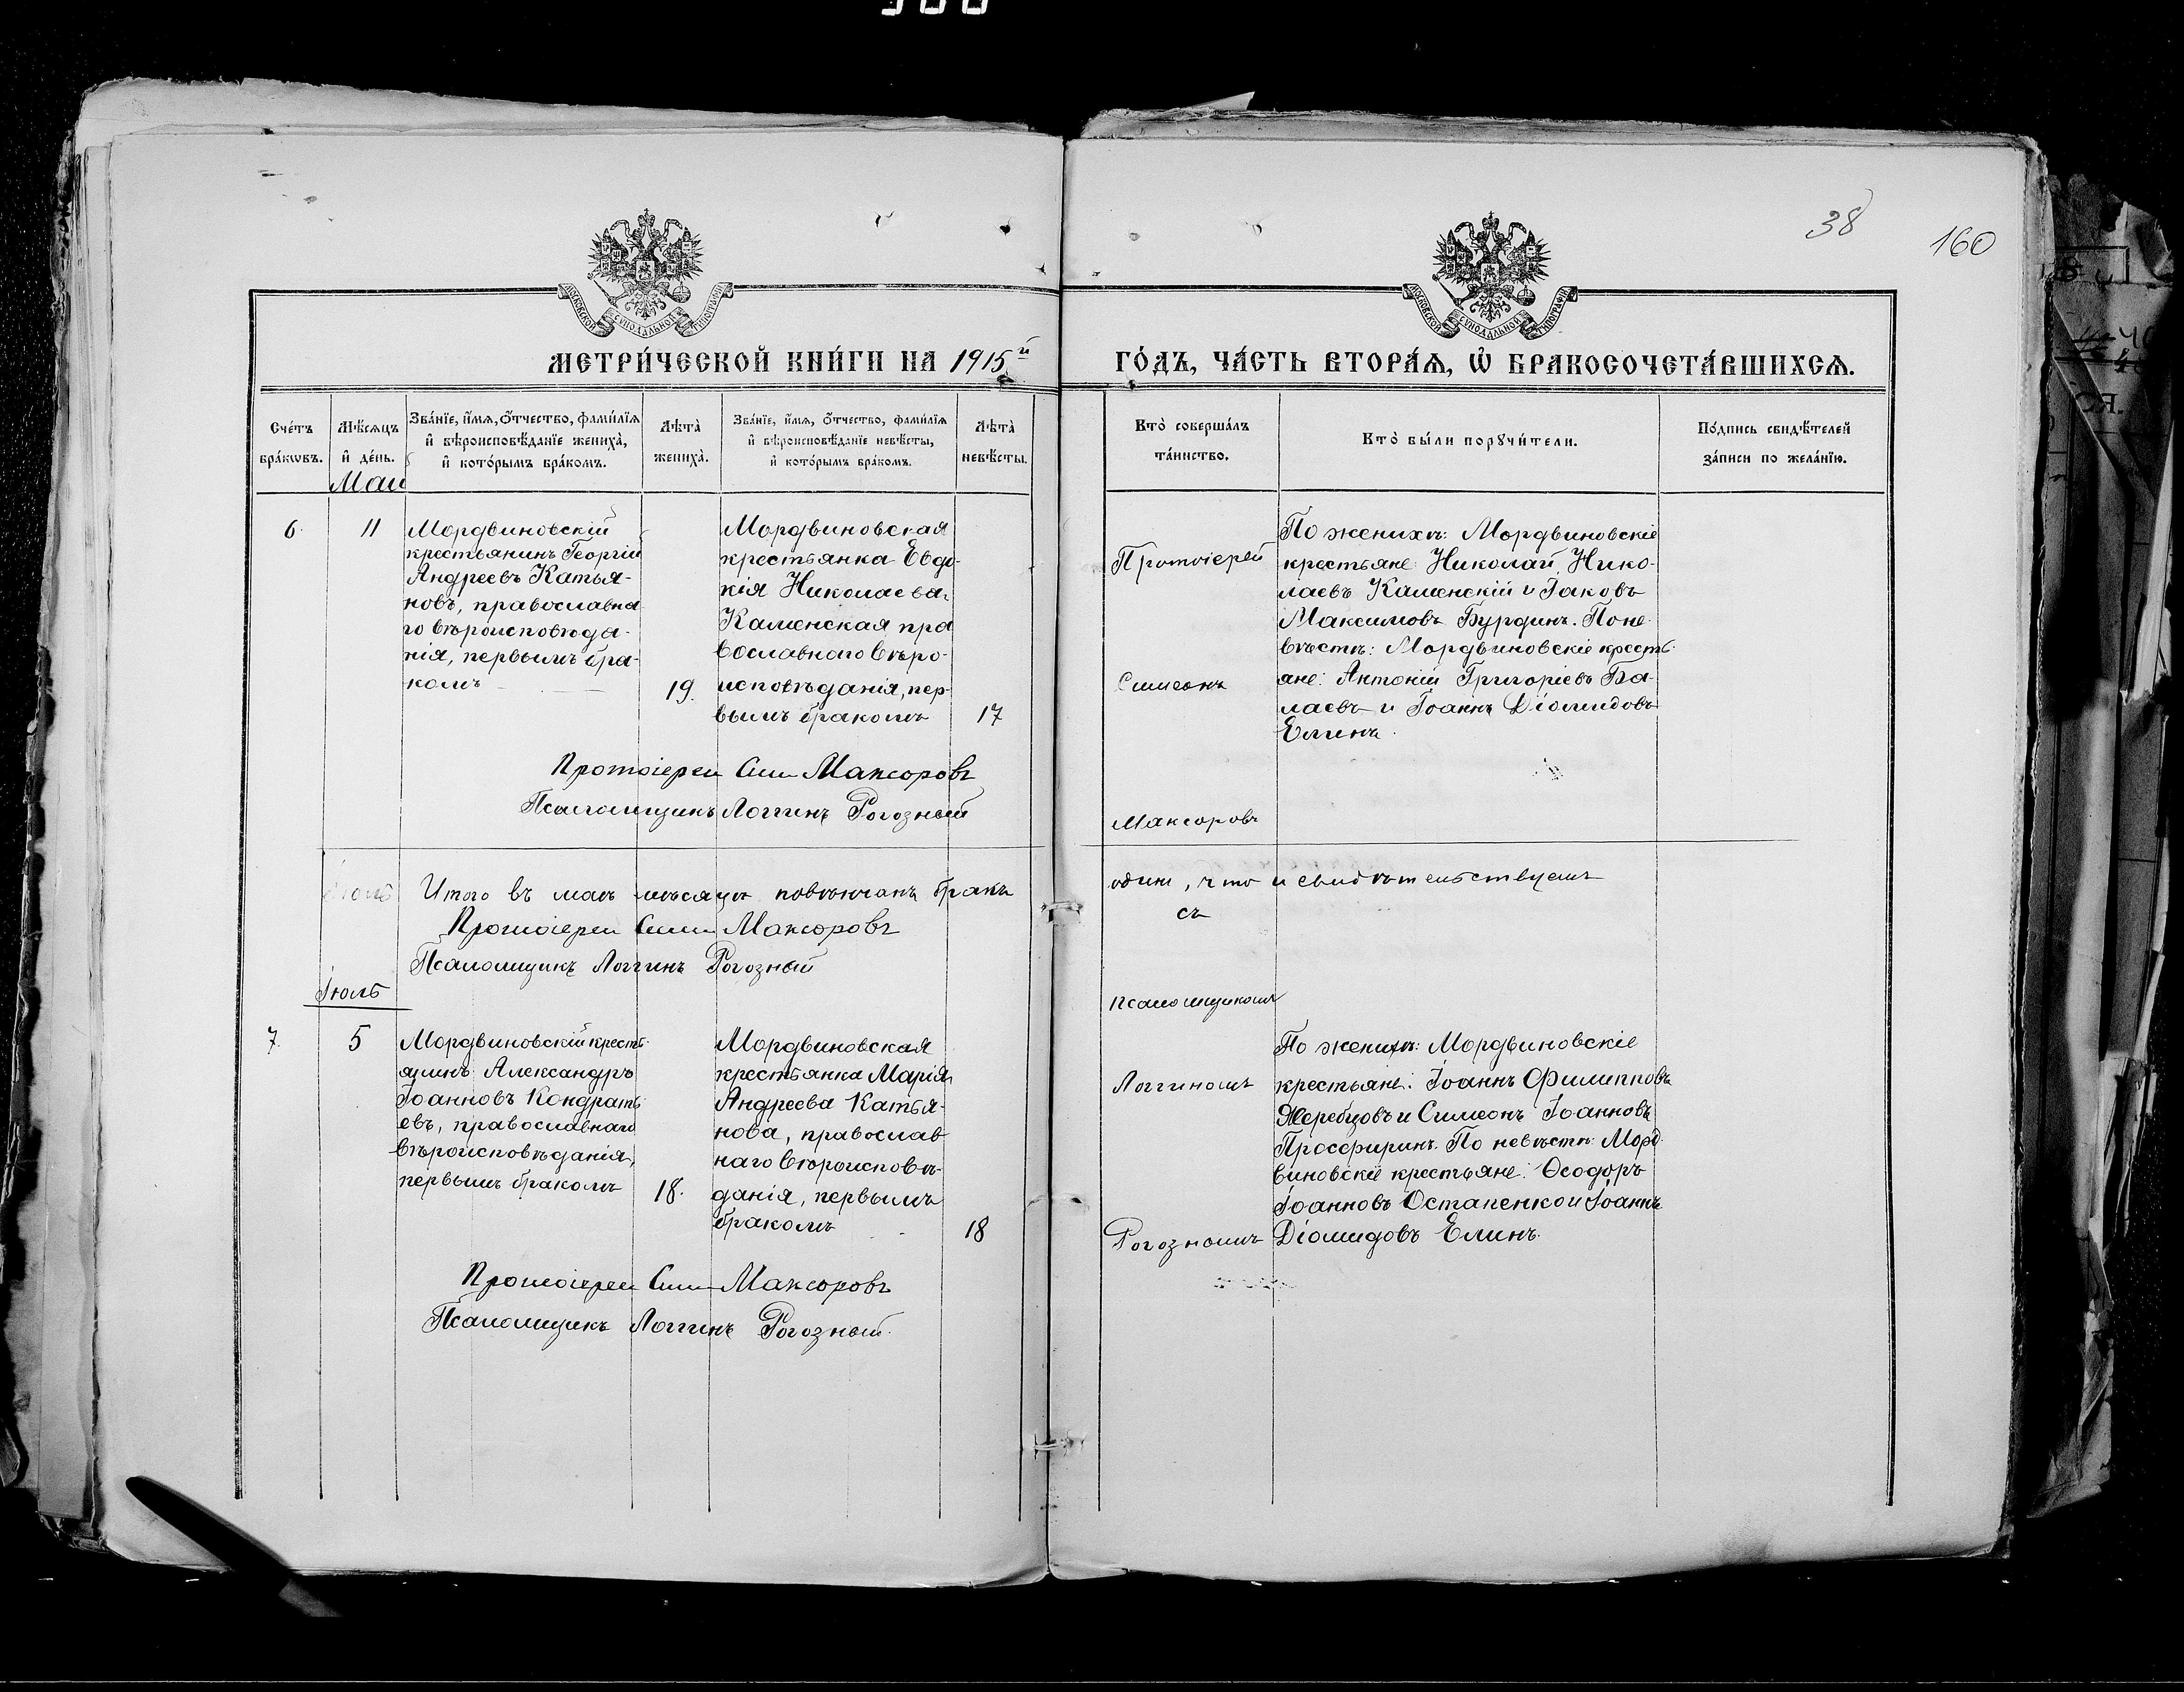 38
160
МОСКОВСКОЙ СѴНОДАЛЬНОЙ ТѴПОГРАФІИ
МОСКОВСКОЙ СѴНОДАЛЬНОЙ ТѴПОГРАФІИ
МЕТРИ́ЧЕСКОЙ КНИ́ГИ НА 1915й
ГО́ДЪ, ЧА́СТЬ ВТОРА́Ѧ, Ѡ҆ БРАКОСОЧЕТА́ВШИХСѦ.
Сче́тъ
бра́кѡвъ.
Мѣ́сѧцъ
и҆ де́нь.
Зва́нїе, и҆́мѧ, ѻ҆́тчество, фами́лїѧ
и҆ вѣроисповѣ́данїе жениха̀,
и҆ кото́рымъ бра́комъ.
Лѣта̀
жениха̀.
Зва́нїе, и҆́мѧ, ѻ҆́тчество, фами́лїѧ
и҆ вѣроисповѣ́данїе невѣ́сты,
и҆ кото́рымъ бра́комъ.
Лѣта̀
невѣ́сты.
Кто̀ соверша́лъ
та́инство.
Кто̀ бы́ли порꙋчи́тели.
По́дпись свидѣ́телей
за́писи по жела́нїю.
Май
6.
11
Мордвиновскій
крестьянинъ Георгій
Андреевъ Катья-
новъ, православна
го вѣроисповѣда-
нія, первымъ бра-
комъ
19.
Мордвиновская
крестьянка Евдо-
кія Николаева
Каменская пра
вославнаго вѣро-
исповѣданія, пер-
вымъ бракомъ
17
Протоіерей
Симеонъ
Максоровъ
По женихѣ: Мордвиновскіе
крестьяне: Николай Нико-
лаевъ Каменскій и Іаковъ
Максимовъ Бурдинъ. По не-
вѣстѣ: Мордвиновскіе кресть-
яне: Антоній Григоріевъ Ба-
лаевъ и Іоаннъ Діомидовъ
Елинъ.
Протоіерей Сим Максоровъ
Псаломщикъ Логгинъ Рогозный
Итого въ маѣ мѣсяцѣ повѣнчанъ бракъ
одинъ, что и свидѣтельствуемъ
Протоіерей Сим Максоровъ
съ
Псаломщикъ Логгинъ Рогозный
Іюль
псаломщикомъ
7.
5
Мордвиновскій кресть-
янинъ Александръ
Іоанновъ Кондрать-
евъ, православнаго
вѣроисповѣданія,
первымъ бракомъ
18.
Мордвиновская
крестьянка Марія
Андреева Катья-
нова, православ
наго вѣроисповѣ-
данія, первымъ
бракомъ
18
Логгиномъ
Рогознымъ
По женихѣ: Мордвиновскіе
крестьяне: Іоаннъ Филипповъ
Жеребцовъ и Симеонъ Іоанновъ
Просфиринъ. По невѣстѣ: Морд-
виновскіе крестьяне: Ѳеодоръ
Іоанновъ Остапенко и Іоаннъ
Діомидовъ Елинъ.
Протоіерей Сим Максоровъ
Псаломщикъ Логгинъ Рогозный.